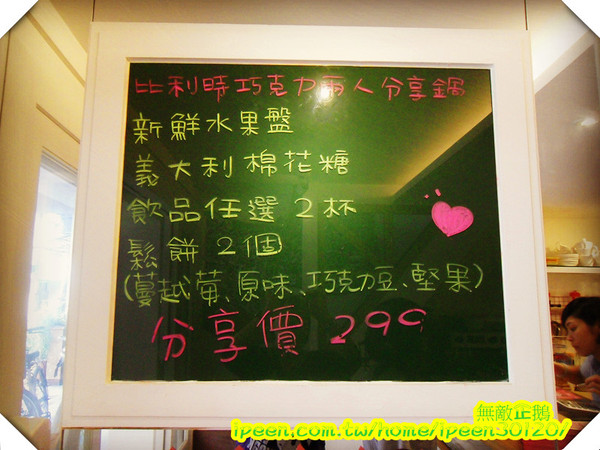 比利時巧克力兩人分享鍋
新鮮水果盤
義大利棉花糖
飲品任選2杯
鬆餅2個
(蔓越莓、原味、巧克力豆、堅果)
分享價 299
無敵企鵝
ipeen.com.tw/home/ipeen30120/